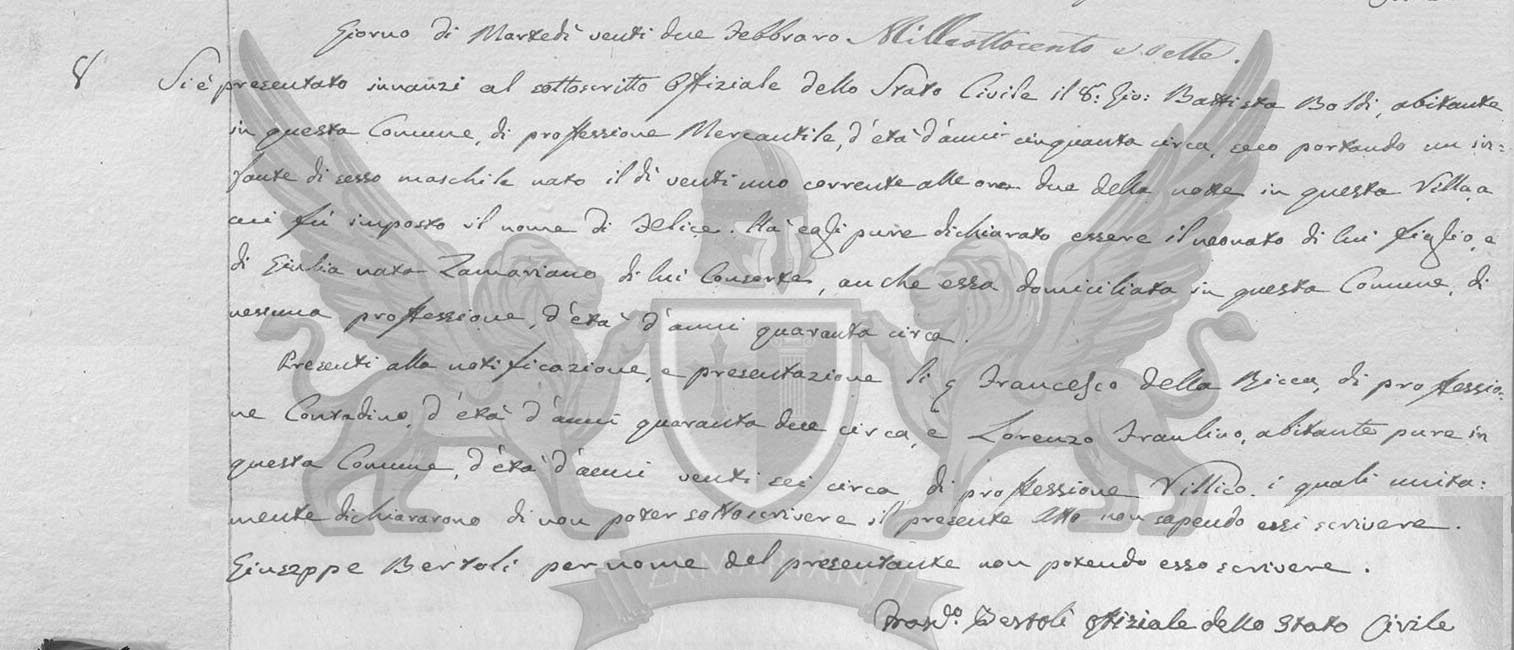 Giorno di Martedì venti due Febbraro Milleottocento e Sette.
8 Si è presentato innanzi al sottoscritto Offiziale dello Stato Civile il S: Gio: Battista Boldi, abitante
in questa Comune, di proffessione Mercantile, d'età d'anni cinquanta circa, seco portando un in:
fante di sesso maschile nato il dì venti uno corrente alle ore due della notte in questa Villa, a
cui fù imposto il nome di Felice. Hà egli pure dichiarato essere il neonato di lui figlio, e
di Giulia nata Zamariano di lui Consorte, anche essa domiciliata in questa Comune, di
nessuna proffessione, d'età d'anni quaranta circa.
Presenti alla notificazione, e presentazione li Francesco della Bicca, di proffessio:
ne Contadino, d'età d'anni quaranta due circa, e Lorenzo Fraulino, abitante pure in
questa Comune, d'età d'anni venti sei circa, di proffessione Villico. i quali unita:
mente dichiararono di non poter sottoscrivere il presente Atto non sapendo essi scrivere.
Giuseppe Bertoli per nome del presentante non potendo esso scrivere.
Bertoli Offiziale dello Stato Civile